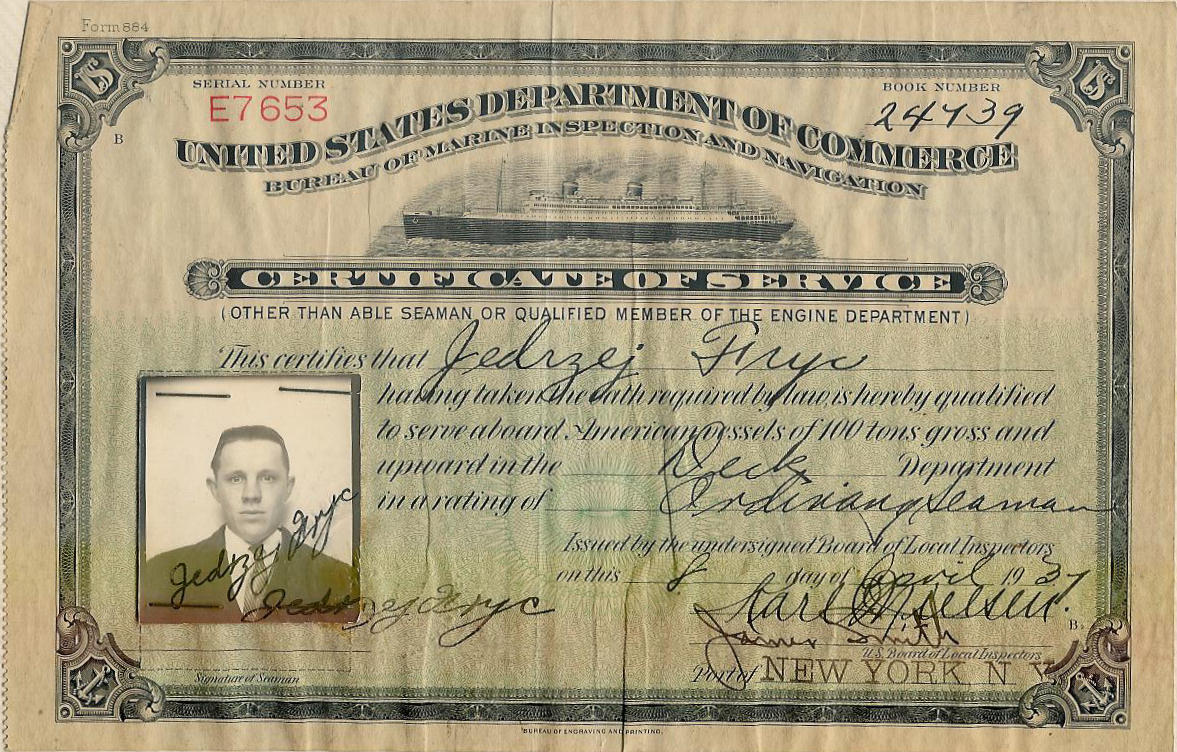 Form 884
SERIAL NUMBER
E7653
BOOK NUMBER
24739
B
UNITED STATES DEPARTMENT OF COMMERCE
BUREAU OF MARINE INSPECTION AND NAVIGATION
CERTIFICATE OF SERVICE
(OTHER THAN ABLE SEAMAN OR QUALIFIED MEMBER OF THE ENGINE DEPARTMENT)
This certifies that Jedrzej Fryc
having taken the oath required by law, is hereby qualified
to serve aboard American vessels of 100 tons gross and
upward in the Deck Department
in a rating of Ordinary Seaman
Issued by the undersigned Board of Local Inspectors
on this 8 day of April 1937
Jedrzej Fryc
Jedrzej Fryc
Karl Nielsen.
James Smith
B
U.S. Board of Local Inspectors
Port of NEW YORK, N. Y.
Signature of Seaman
BUREAU OF ENGRAVING AND PRINTING.
US
US